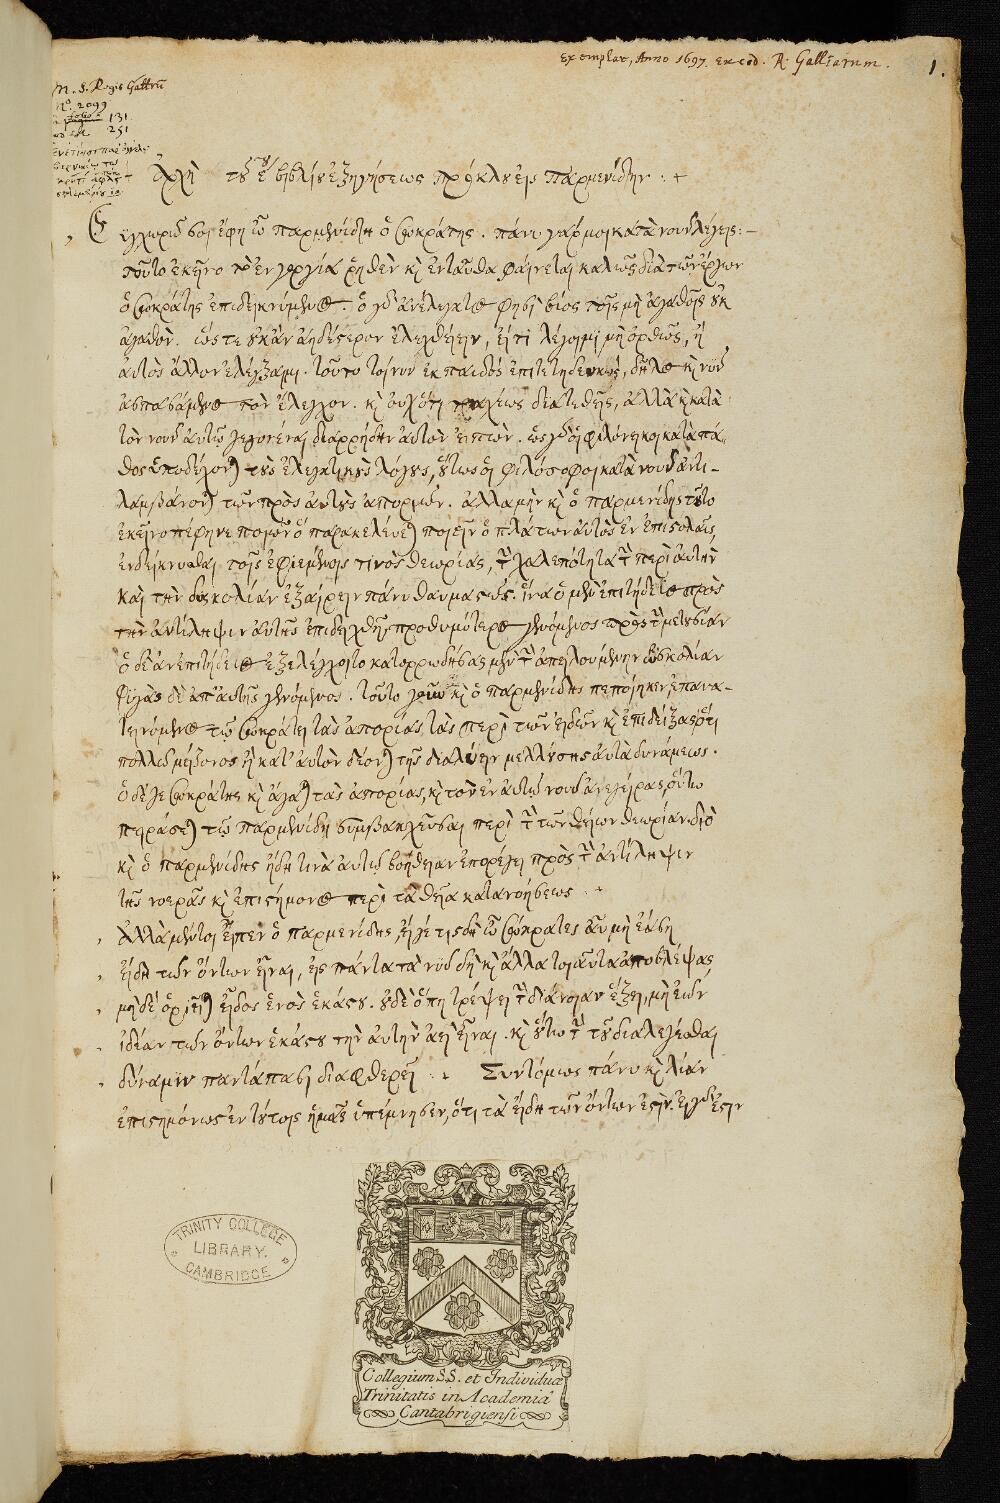 exemplar, Anno 1697. ex cod. R. Galliarum.
1.
M. S. Regis Galliæ
Nº. 2099
131
251
Ἀρχὴ τοῦ ε´ βιβλίου ἐξηγήσεως πρόκλου εἰς παρμενίδην :+
Συγχωρῶ σοι ἔφη ὦ παρμενίδη ὁ σωκράτης. πάνυ γάρ μοι κατὰ νοῦν λέγεις :-
τοῦτο ἐκεῖνο τὸ ἐν γοργία ῥηθὲν κὶ ἐνταῦθα φαίνεται καλῶς διὰ τῶν ἔργων
ὁ σωκράτης ἐπιδεικνύμενος. ὁ γὰρ ἀνέλεγκτος φησὶ βίος τοῖς μὴ ἀγαθοῖς οὐκ
ἀγαθόν. ὥστε οὐκ ἂν ἀηδέστερον ἐλεγχθείην, εἴ τι λέγοιμι μὴ ὀρθῶς, ἢ
αὐτὸς ἄλλον ἐλέγξαιμι. τοῦτο τοίνυν ἐκ παιδὸς ἐπιτετηδευκώς, δῆλος κὶ νῦν
ἀσπασάμενος τὸν ἔλεγχον. κὶ οὐχ ὅτι τραχέως διατεθεὶς, ἀλλὰ κὶ κατὰ
τὸν νοῦν αὐτῷ γεγονέναι διαρρήδην αὐτὸν εἰπὼν. ὡς γὰρ οἱ φιλόνεικοι κατὰ πά-
θος ὑποδέχονται τοὺς ἐλεγκτικοὺς λόγους, οὕτως οἱ φιλόσοφοι κατὰ νοῦν ἀντι-
λαμβάνονται τῶν πρὸς αὐτοὺς ἀποριῶν. ἀλλὰ μὴν κὶ ὁ παρμενίδης τοῦτο
ἐκεῖνο πέφηνε ποιῶν ὃ παρακελεύεται ποιεῖν ὁ πλάτων αὐτὸς ἐν ἐπιστολαῖς,
ἐνδείκνυσθαι τοῖς ἐφιεμένοις τινὸς θεωρίας, τὴν χαλεπότητα τὴν περὶ αὐτὴν
καὶ τὴν δυσκολίαν ἐξαίρειν πάνυ θαυμαστῶς. ἵνα ὁ μὲν ἐπιτήδειος πρὸς
τὴν ἀντίληψιν αὐτῆς ἐπιδειχθῇ προθυμότερος γενόμενος πρὸς τὴν μετουσίαν
ὁ δὲ ἀνεπιτήδειος ἐξελέγχοιτο κατορρωδήσας μὲν τὴν ἀπειλουμένην δυσκολίαν
φυγὰς δὲ ἀπ' αὐτῆς γενόμενος. τοῦτο γοῦν κὶ ὁ παρμενίδης πεποίηκεν, ἐπανα-
τεινόμενος τῷ σωκράτει τὰς ἀπορίας τὰς περὶ τῶν εἰδῶν κὶ ἐπιδείξας ὅτι
πολλοῦ μείζονος ἢ κατ' αὐτὸν δέονται τῆς διαλύειν μελλούσης αὐτὰ δυνάμεως.
ὁ δέ γε σωκράτης κὶ ἄγαται τὰς ἀπορίας, κὶ τὸν ἐν αὐτῷ νοῦν ἀνεγείρας, οὕτω
πειρᾶσεται τῷ παρμενίδῃ συμβακχεῦσαι περὶ τὴν τῶν θείων θεωρίαν. διὸ
κὶ ὁ παρμενίδης ἤδη τινὰ αὐτῷ βοήθειαν ἐπορέγει πρὸς τὴν ἀντίληψιν
τῆς νοερᾶς κὶ ἐπιστήμονος περὶ τὰ θεῖα κατανοήσεως :+
Ἀλλὰ μέντοι εἶπεν ὁ παρμενίδης, εἴ γέ τις δὴ ὦ σώκρατες αὖ μὴ ἐάσῃ
εἴδη τῶν ὄντων εἶναι, εἰς πάντα τὰ νῦν δὴ κὶ ἄλλα τοιαῦτα ἀποβλέψας,
μηδὲ ὁριεῖται εἶδος ἑνὸς ἑκάστου. οὐδὲ ὅπη τρέψει τὴν διάνοιαν ἕξει, μὴ ἐῶν
ἰδέαν τῶν ὄντων ἑκάστου τὴν αὐτὴν ἀεὶ εἶναι. κὶ οὕτω τὴν τοῦ διαλέγεσθαι
δύναμιν παντάπασι διαφθερεῖ :. Συντόμως πάνυ κὶ λίαν
ἐπιστημόνως ἐν τούτοις ἡμᾶς ὑπέμνησεν, ὅτι τὰ εἴδη τῶν ὄντων ἐστίν. εἰ γὰρ ἔστιν
TRINITY COLLEGE
LIBRARY.
CAMBRIDGE
Collegium S.S. et Individuæ
Trinitatis in Academiâ
Cantabrigiensi